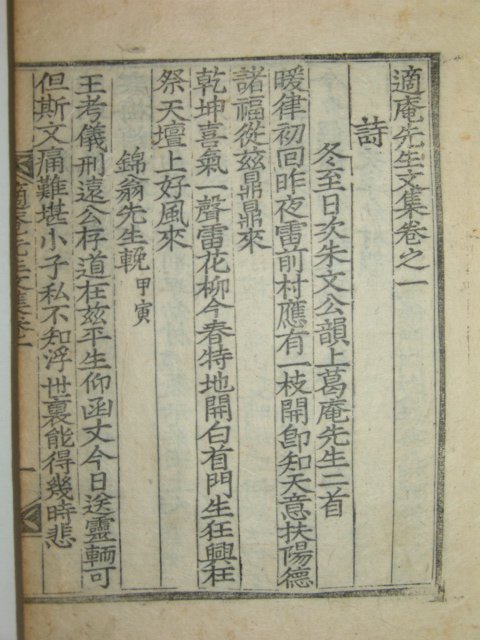 適庵先生文集卷之一
詩
冬至日次朱文公韻上葛庵先生二首
暖律初回昨夜雷前村應有一枝開卽知天意扶陽德
諸福從玆鼎鼎來
乾坤喜氣一聲雷花柳今春特地開白首門生狂興在
祭天壇上好風來
錦翁先生輓甲寅
王考儀刑遠公存道在玆平生仰函丈今日送靈輀可
但斯文痛難堪小子私不知浮世裏能得幾時悲